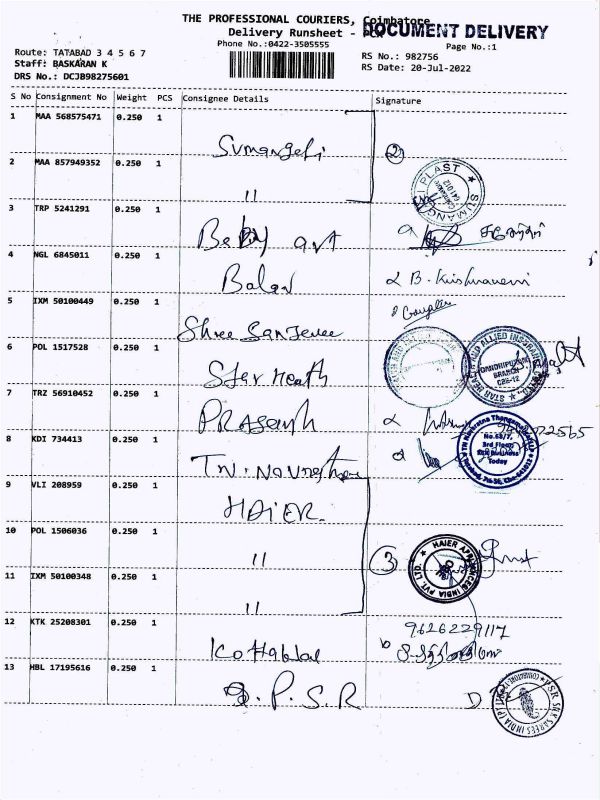 THE PROFESSIONAL COURIERS, Coimbatore
Delivery Runsheet -
DOCUMENT DELIVERY
Phone No.:0422-3505555
Page No.:1
Route: TATABAD 3 4 5 6 7
RS No.: 982756
Staff: BASKARAN K
RS Date: 20-Jul-2022
DRS No.: DCJB98275601
S No Consignment No Weight PCS Consignee Details Signature
1 MAA 568575471 0.250 1
Sumangali 2
2 MAA 857949352 0.250 1
"
SUMANGALI PLAST
3 TRP 5241291 0.250 1
Baby art
4 NGL 6845011 0.250 1
Balan B. Krishnaveni
5 IXM 50100449 0.250 1
Shree Sanjeevee
6 POL 1517528 0.250 1
Star Health
STAR HEALTH AND ALLIED INSURANCE
GANDHIPURAM
BRANCH
CBE-12
7 TRZ 56910452 0.250 1
PRAsanth
8 KDI 734413 0.250 1
No.63/7,
3rd Floor
9 VLI 208959 0.250 1
HAIER
10 POL 1506036 0.250 1
" 3
HAIER APPLIANCES INDIA PVT. LTD.
11 IXM 50100348 0.250 1
"
12 KTK 25208301 0.250 1
9626229117
13 HBL 17195616 0.250 1
P.S.R